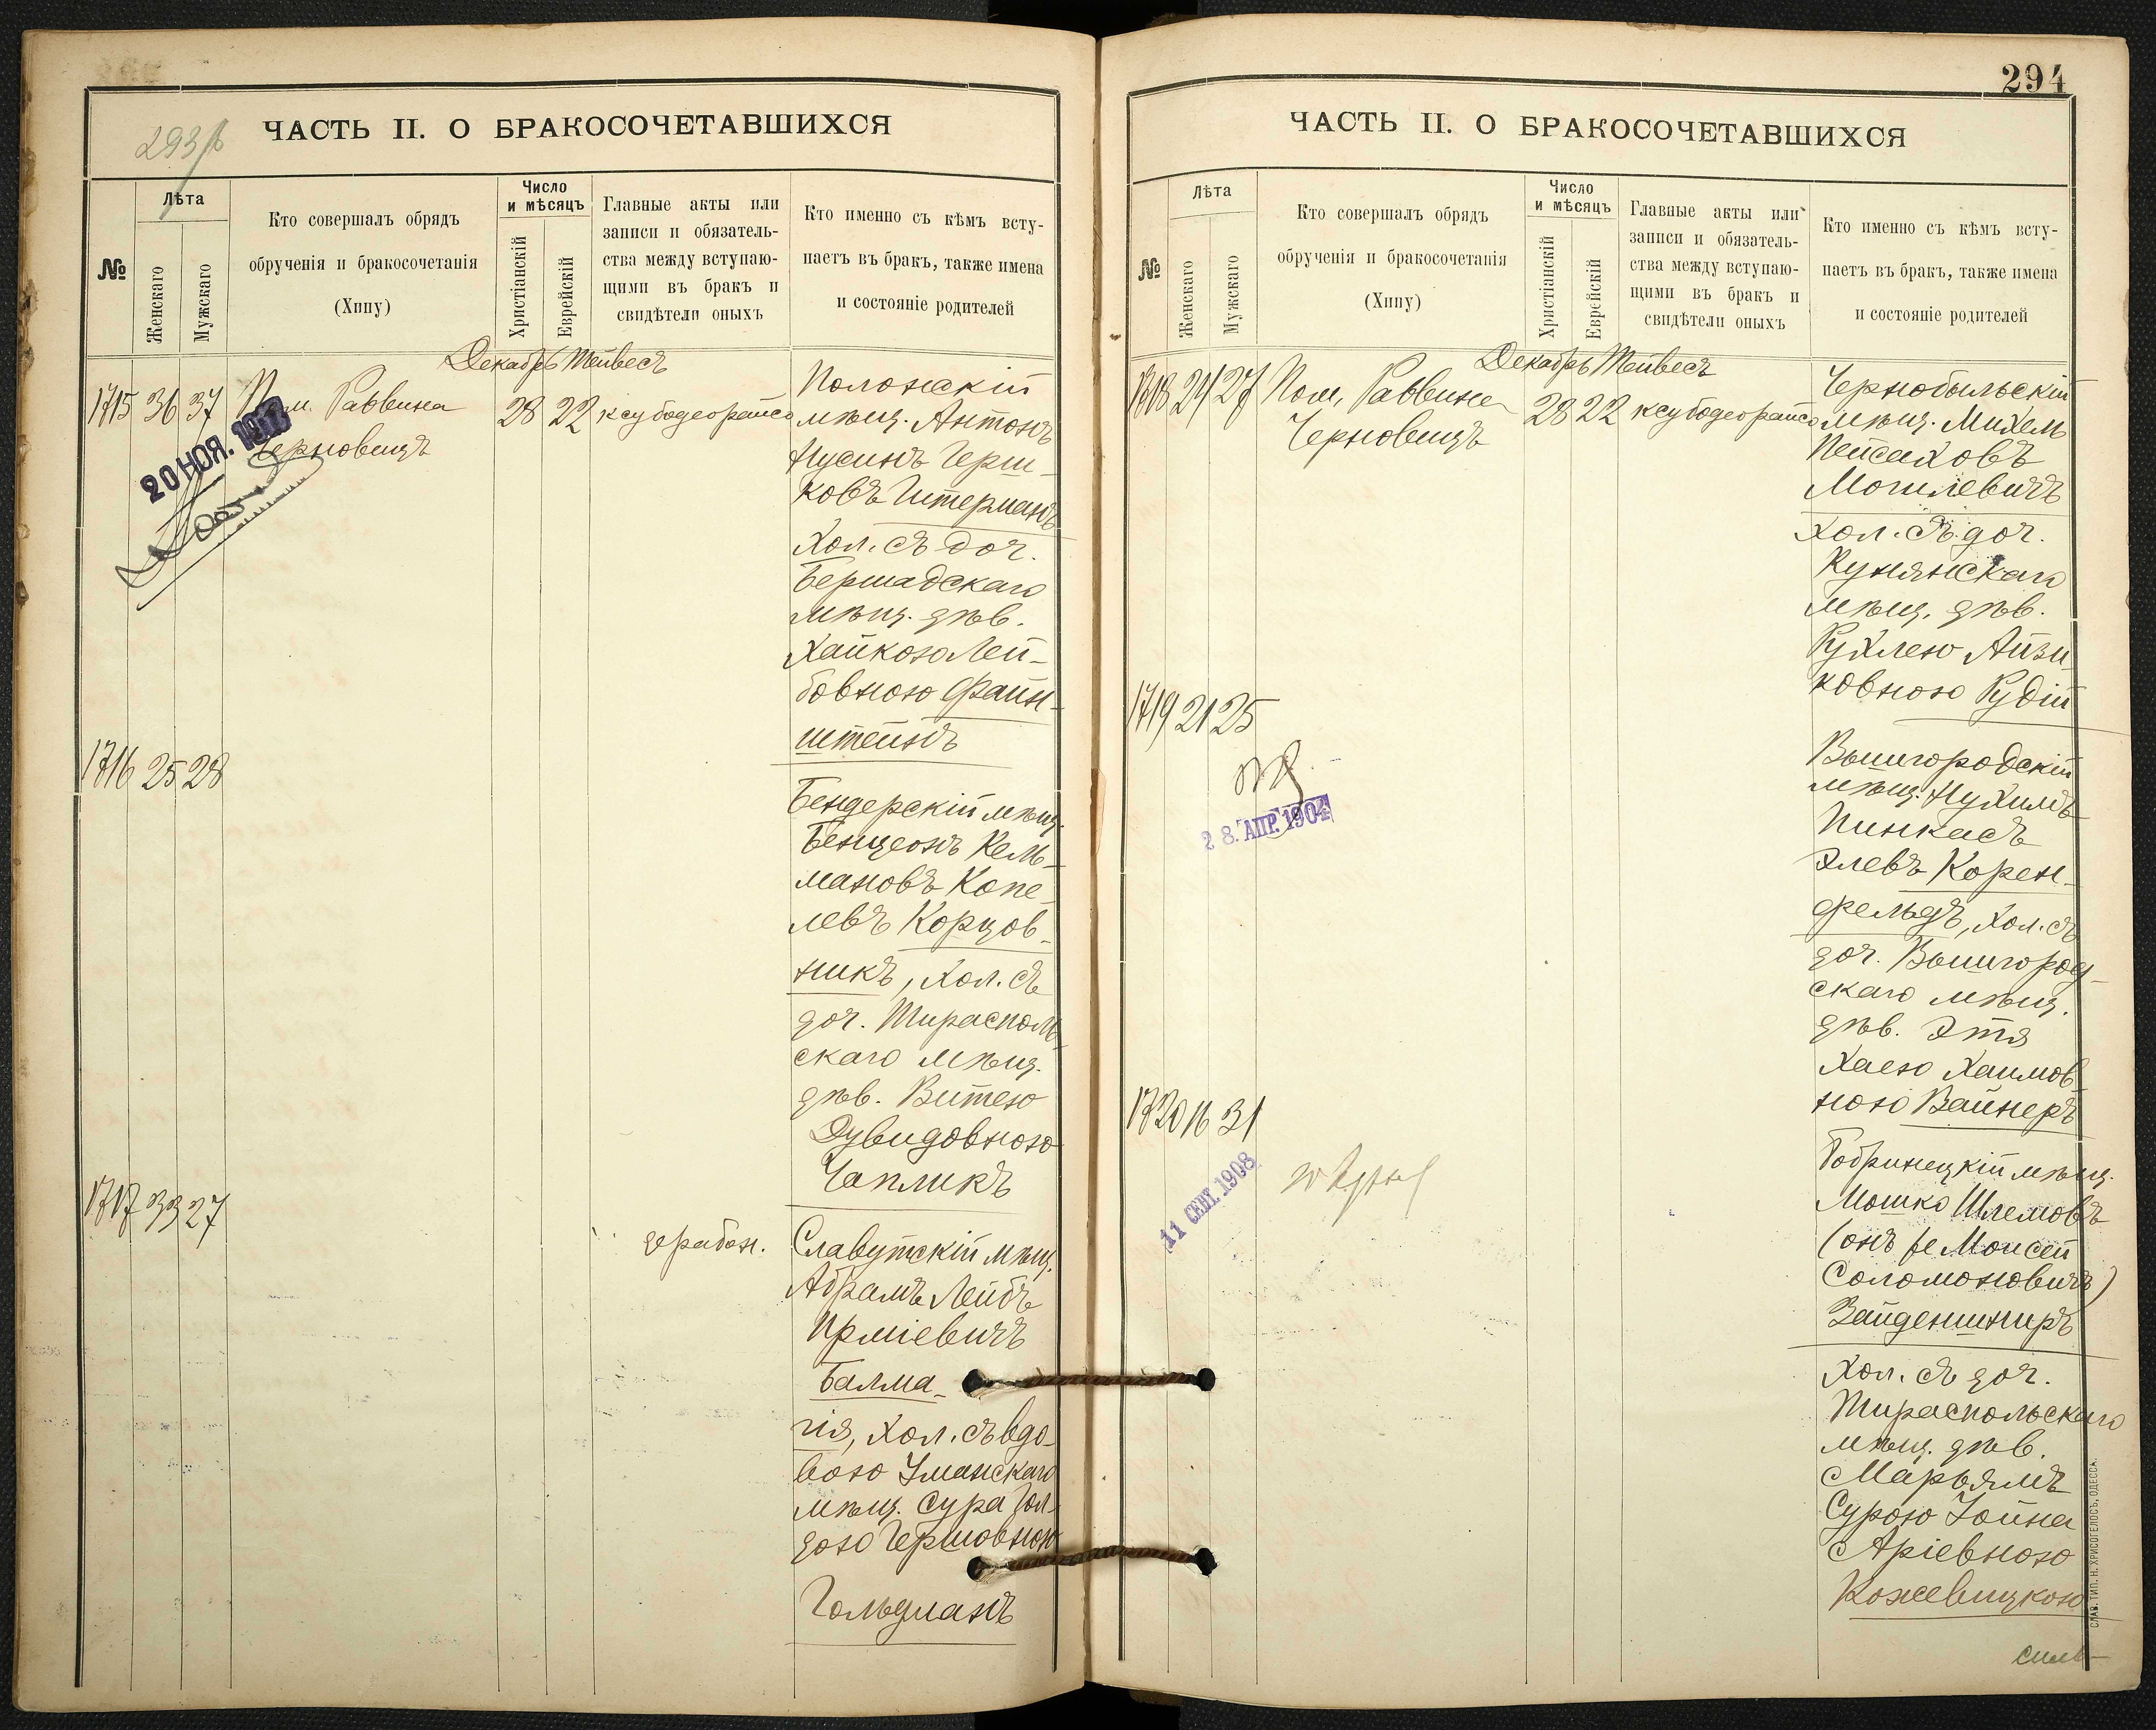 293/б
ЧАСТЬ II. О БРАКОСОЧЕТАВШИХСЯ
№
Лѣта
Женскаго
Мужскаго
Кто совершалъ обрядъ
обрученія и бракосочетанія
(Хипу)
Число
и мѣсяцъ
Христіанскій
Еврейскій
Главные акты или
записи и обязатель-
ства между вступаю-
щими въ бракъ и
свидѣтели оныхъ
Кто именно съ кѣмъ всту-
паетъ въ бракъ, также имена
и состояніе родителей
Декабрь Тейвесъ
1715 36 37 Пом. Раввина
Черновицъ
28 22
20 НОЯ.
Полонскій
мѣщ. Антонъ
Нусинъ Герш-
ковъ Штерманъ
хол. съ доч.
Бершадскаго
мѣщ. дѣв.
Хайкою Лей-
бовною Файн-
штейнъ
1716 25 28
Бендерскій мѣщ.
Бенціонъ Кель-
мановъ Копе-
левъ Корцов-
никъ, хол. съ
доч. Тирасполь-
скаго мѣщ.
дѣв. Витею
Дувидовною
Чапликъ
1717 33 27
Славутскій мѣщ.
Абрамъ Лейбъ
Ирміевичъ
Балма-
гія, хол. съ вдо-
вою Уманскаго
мѣщ. Сура Гол-
дою Гершовною
Гольдманъ
294
ЧАСТЬ II. О БРАКОСОЧЕТАВШИХСЯ
№
Лѣта
Женскаго
Мужскаго
Кто совершалъ обрядъ
обрученія и бракосочетанія
(Хипу)
Число
и мѣсяцъ
Христіанскій
Еврейскій
Главные акты или
записи и обязатель-
ства между вступаю-
щими въ бракъ и
свидѣтели оныхъ
Кто именно съ кѣмъ всту-
паетъ въ бракъ, также имена
и состояніе родителей
Декабрь Тейвесъ
1718 21 27 Пом. Раввина
Черновицъ
28 22
Чернобыльскій
мѣщ. Михель
Пейсаховъ
Могилевичъ
хол. съ доч.
Кунянскаго
мѣщ. дѣв.
Рухлею Айзи-
ковною Рудій
1719 21 25
28. АПР. 1904
Вышгородскій
мѣщ. Нухимъ
Пинкасъ
Элевъ Корен-
фельдъ, хол. съ
доч. Вышгород-
скаго мѣщ.
дѣв. Этя
Хаею Хаимов-
ною Вайнеръ
1720 16 31
11 СЕНТ. 1908
Бобринецкій мѣщ.
Мошко Шлемовъ
(онъ же Моисей
Соломоновичъ)
Зайденшниръ
хол. съ доч.
Тираспольскаго
мѣщ. дѣв.
Марьямъ
Сурою Зойна
Аріевною
Кожевицкою
СЛАВ. ТИП. Н. ХРИСОГЕЛОСЪ, ОДЕССА.